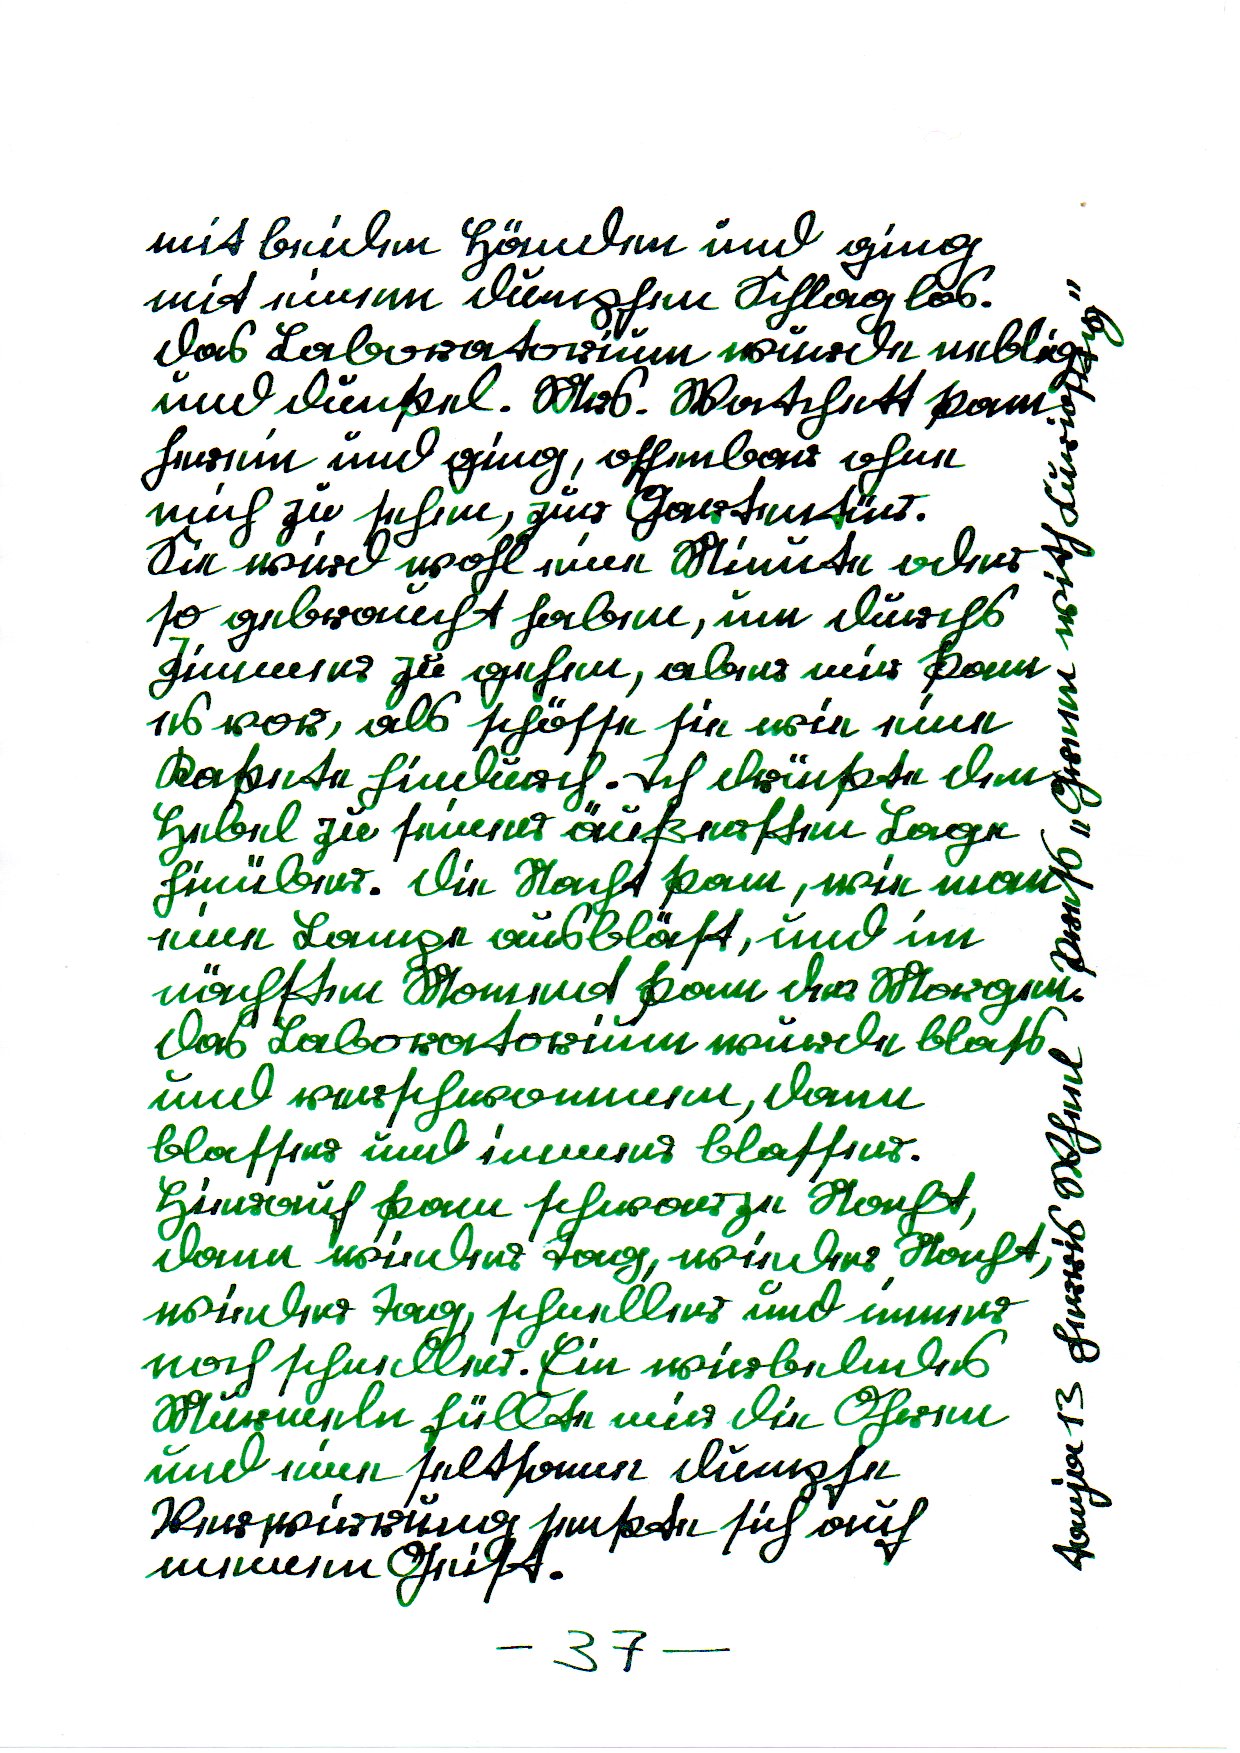 mit beiden Händen und ging
mit einem dumpfen Schlag los.
das Laboratorium wurde neblig
und dunkel. Mrs. Watchett kam
herein und ging, offenbar ohne
mich zu sehen, zur Gartentür.
Sie wird wohl eine Minute oder
so gebraucht haben, um durchs
Zimmer zu gehen, aber mir kam
es vor, als schösse sie wie eine
Rakete hindurch. Ich drückte den
Hebel zu seiner äußersten Lage
hinüber. die Nacht kam, wie man
eine Lampe ausbläst, und im
nächsten Moment kam der Morgen.
das Laboratorium wurde blass
und verschwommen, dann
blasser und immer blasser.
Hierauf kam schwarze Nacht,
dann wieder Tag, wieder Nacht,
wieder Tag, schneller und immer
noch schneller. Ein wirbelndes
Murmeln füllte mir die Ohren
und eine seltsame dumpfe
Verwirrung senkte sich auf
meinem Geist.
- 37 -